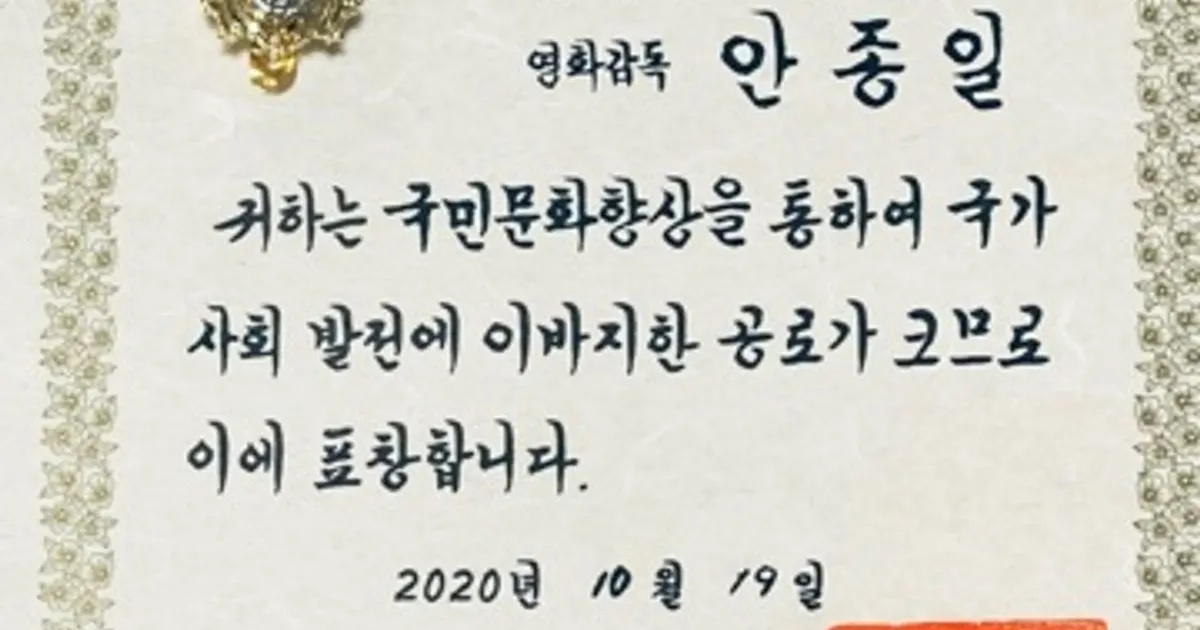 영화감독 안종일
귀하는 국민문화향상을 통하여 국가
사회 발전에 이바지한 공로가 크므로
이에 표창합니다.
2020년 10월 19일